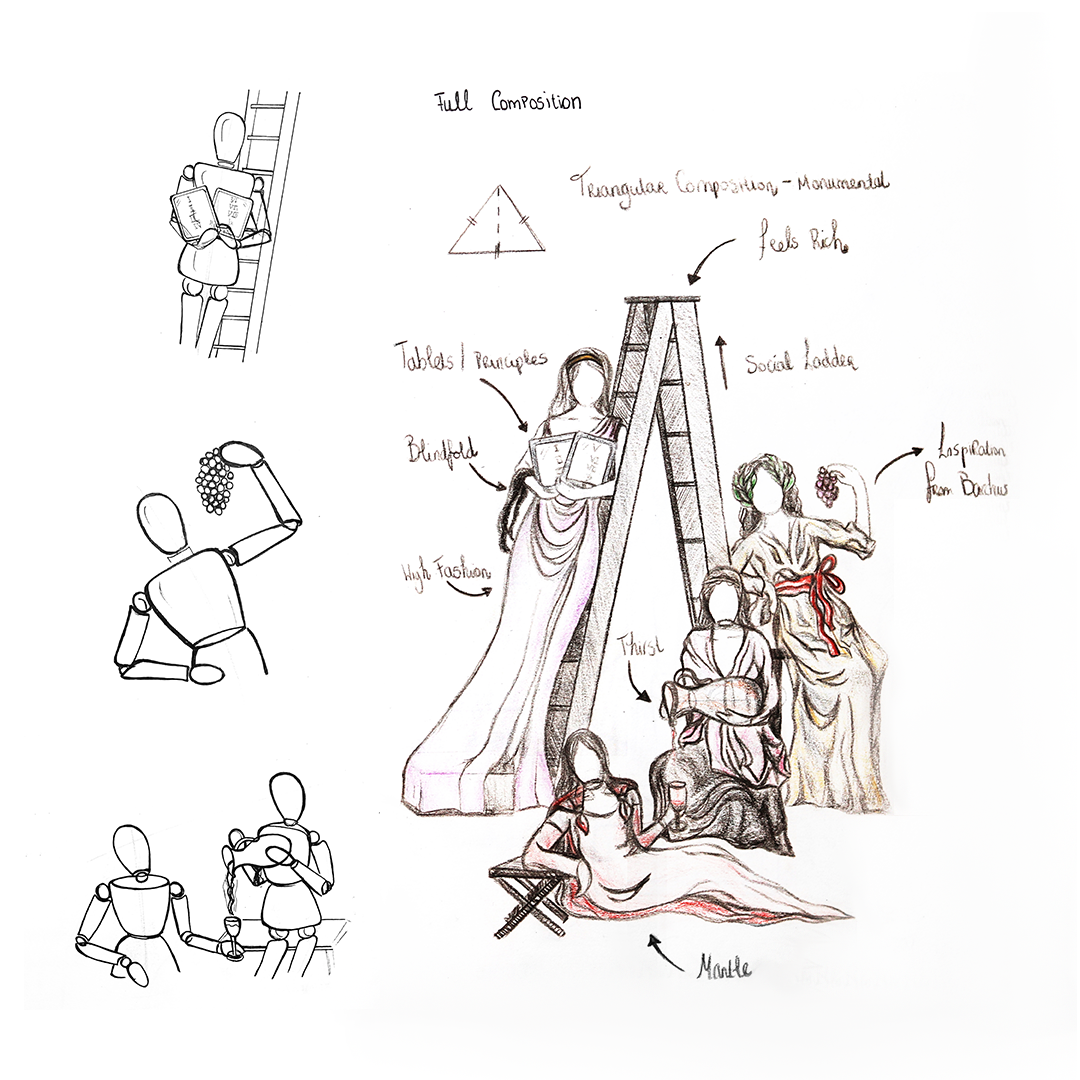 Full Composition
Triangular Composition - Monumental
feels Rich
Tablets / Principles
Social Ladder
Blindfold
Inspiration
from Bacchus
High Fashion
Thirst
Mantle